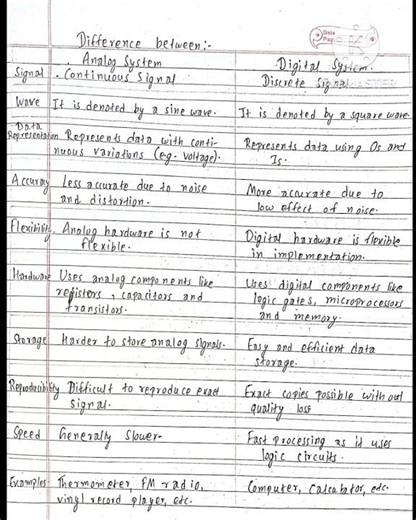 Difference between:-
Analog System
Digital System.
Signal . Continuous Signal
Discrete Signal
Wave It is denoted by a sine wave.
It is denoted by a square wave.
Data
Representation Represents data with conti-
nuous variations (eg. voltage).
Represents data using 0s and
1s.
Accuracy Less accurate due to noise
and distortion.
More accurate due to
low effect of noise.
Flexibility, Analog hardware is not
flexible.
Digital hardware is flexible
in implementation.
Hardware Uses analog components like
resistors, capacitors and
transistors.
Uses digital components like
logic gates, microprocessors
and memory.
Storage Harder to store analog signals.
Easy and efficient data
storage.
Reproducibility Difficult to reproduce exact
signal.
Exact copies possible without
quality loss
Speed Generally slower.
Fast processing as it uses
logic circuits.
Examples Thermometer, FM radio,
vinyl record player, etc.
Computer, Calculator, etc.